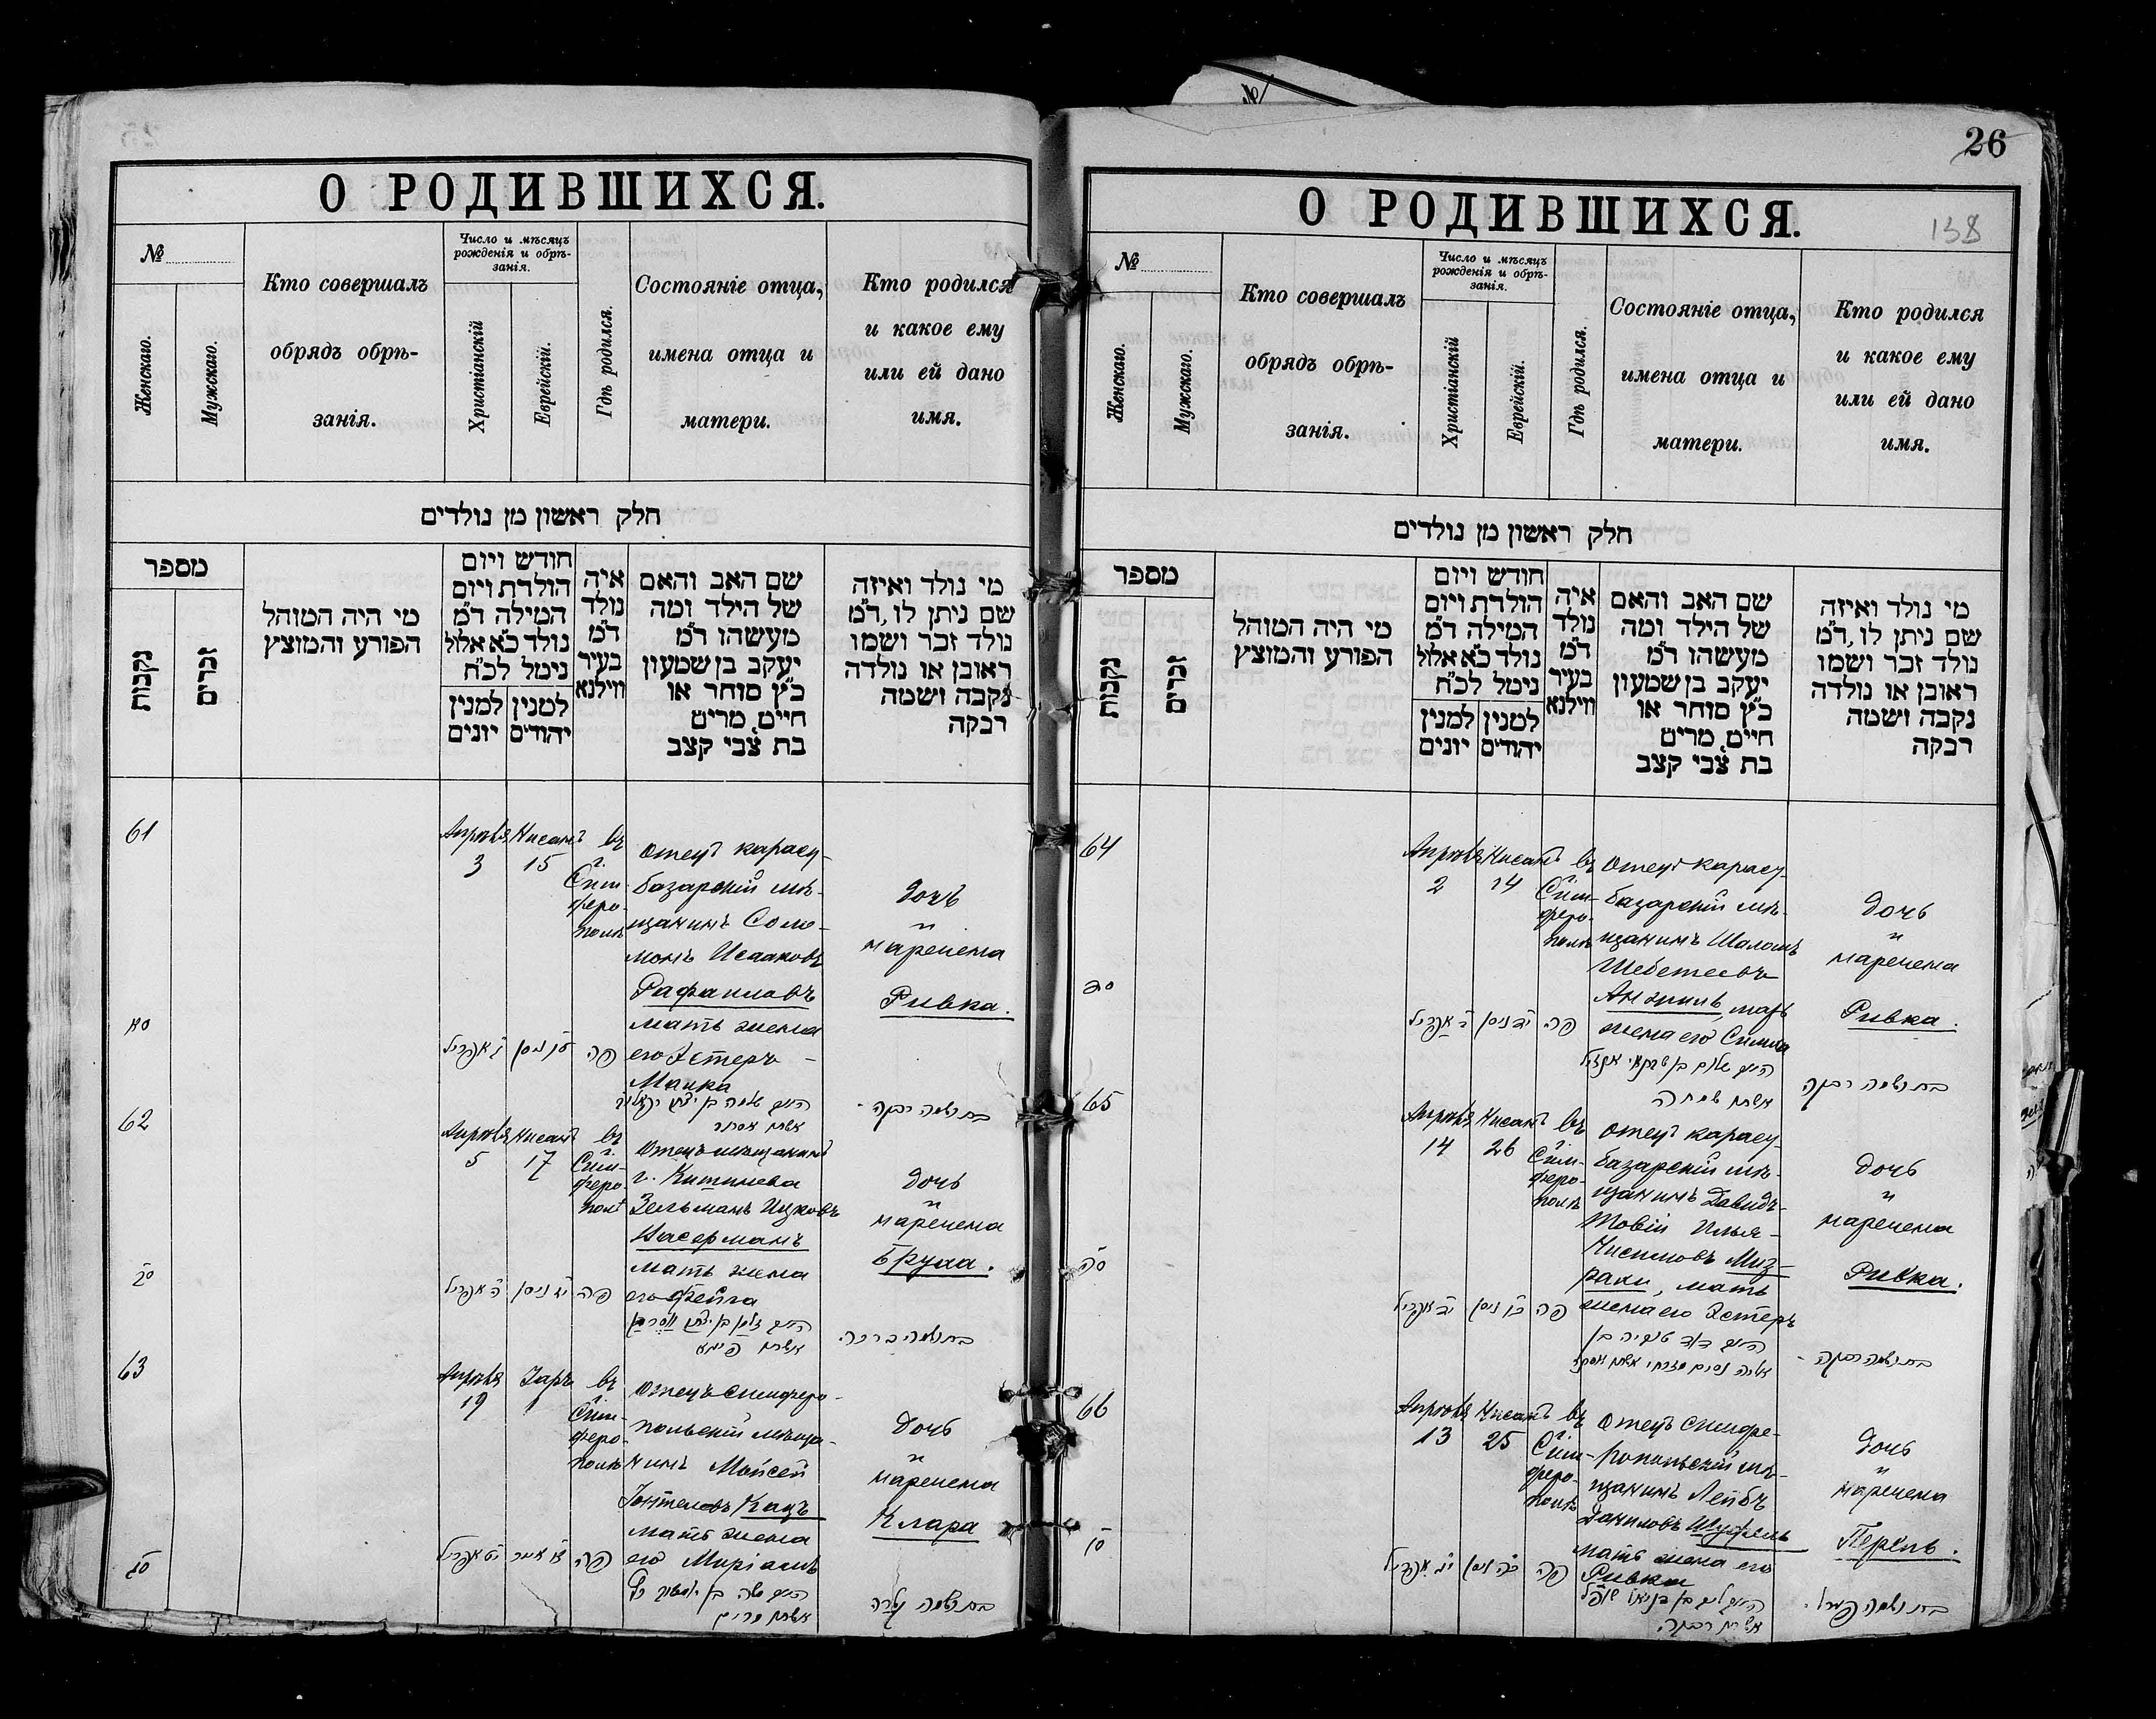 О РОДИВШИХСЯ.
№
Женскаго.
Мужскаго.
Кто совершалъ
обрядъ обрѣ-
занія.
Число и мѣсяцъ
рожденія и обрѣ-
занія.
Христіанскій
Еврейскій.
Гдѣ родился.
Состояніе отца,
имена отца и
матери.
Кто родился
и какое ему
или ей дано
имя.
חלק ראשון מן נולדים
מספר
נקבות
זכרים
מי היה המוהל
הפורע והמוצץ
חודש ויום
הולדת ויום
המילה ד״מ
נולד כ״א אלול
נימל לכ״ח
למנין
יונים
למנין
יהודים
איה
נולד
ד״מ
בעיר
ווילנא
שם האב והאם
של הילד ומה
מעשהו ד״מ
יעקב בן שמעון
כ״ץ סוחר או
חיים, מרים
בת צבי קצב
מי נולד ואיזה
שם ניתן לו, ד״מ
נולד זכר ושמו
ראובן או נולדה
נקבה ושמה
רבקה
61
Апрѣля
3
Нисанъ
15
въ
г.
Сим-
феро-
полѣ
отецъ карасу-
базарскій мѣ-
щанинъ Соло-
монъ Исааковъ
Рафаиловъ
мать жена
его Эстеръ-
Малка
дочь
и
наречена
Ривка.
פה
בת ושמה רבקה
62
Апрѣля
5
Нисанъ
17
въ
г.
Сим-
феро-
полѣ
отецъ мѣщанинъ
г. Кишинева
Зельманъ Ицковъ
Васерманъ
мать жена
его Фейга
дочь
и
наречена
Бруха.
פה
בת ושמה ברכה
63
Апрѣля
19
Іаръ
1
въ
г.
Сим-
феро-
полѣ
отецъ симферо-
польскій мѣща-
нинъ Мойсей
Кацъ
мать жена
его Миріамъ
дочь
и
наречена
Клара
פה
בת ושמה קלרה
26
138
О РОДИВШИХСЯ.
№
Женскаго.
Мужскаго.
Кто совершалъ
обрядъ обрѣ-
занія.
Число и мѣсяцъ
рожденія и обрѣ-
занія.
Христіанскій
Еврейскій.
Гдѣ родился.
Состояніе отца,
имена отца и
матери.
Кто родился
и какое ему
или ей дано
имя.
חלק ראשון מן נולדים
מספר
נקבות
זכרים
מי היה המוהל
הפורע והמוצץ
חודש ויום
הולדת ויום
המילה ד״מ
נולד כ״א אלול
נימל לכ״ח
למנין
יונים
למנין
יהודים
איה
נולד
ד״מ
בעיר
ווילנא
שם האב והאם
של הילד ומה
מעשהו ד״מ
יעקב בן שמעון
כ״ץ סוחר או
חיים, מרים
בת צבי קצב
מי נולד ואיזה
שם ניתן לו, ד״מ
נולד זכר ושמו
ראובן או נולדה
נקבה ושמה
רבקה
64
Апрѣля
2
Нисанъ
14
въ
г.
Сим-
феро-
полѣ
отецъ карасу-
базарскій мѣ-
щанинъ Шаломъ
Шебетеевъ
мать
жена его Симха
дочь
и
наречена
Ривка.
פה
אשתו שמחה
בת ושמה רבקה
65
Апрѣля
14
Нисанъ
26
въ
г.
Сим-
феро-
полѣ
отецъ карасу-
базарскій мѣ-
щанинъ Давидъ-
Товій Илья-
Нисимовъ Миз-
рахи, мать
жена его Эстеръ
дочь
и
наречена
Ривка.
פה
בת ושמה רבקה
66
Апрѣля
13
Нисанъ
25
въ
г.
Сим-
феро-
полѣ
отецъ симфе-
ропольскій мѣ-
щанинъ Лейбъ
Даниловъ Шуфель
мать жена его
Ривка
дочь
и
наречена
Перель.
פה
אשתו רבקה
בת ושמה פערל